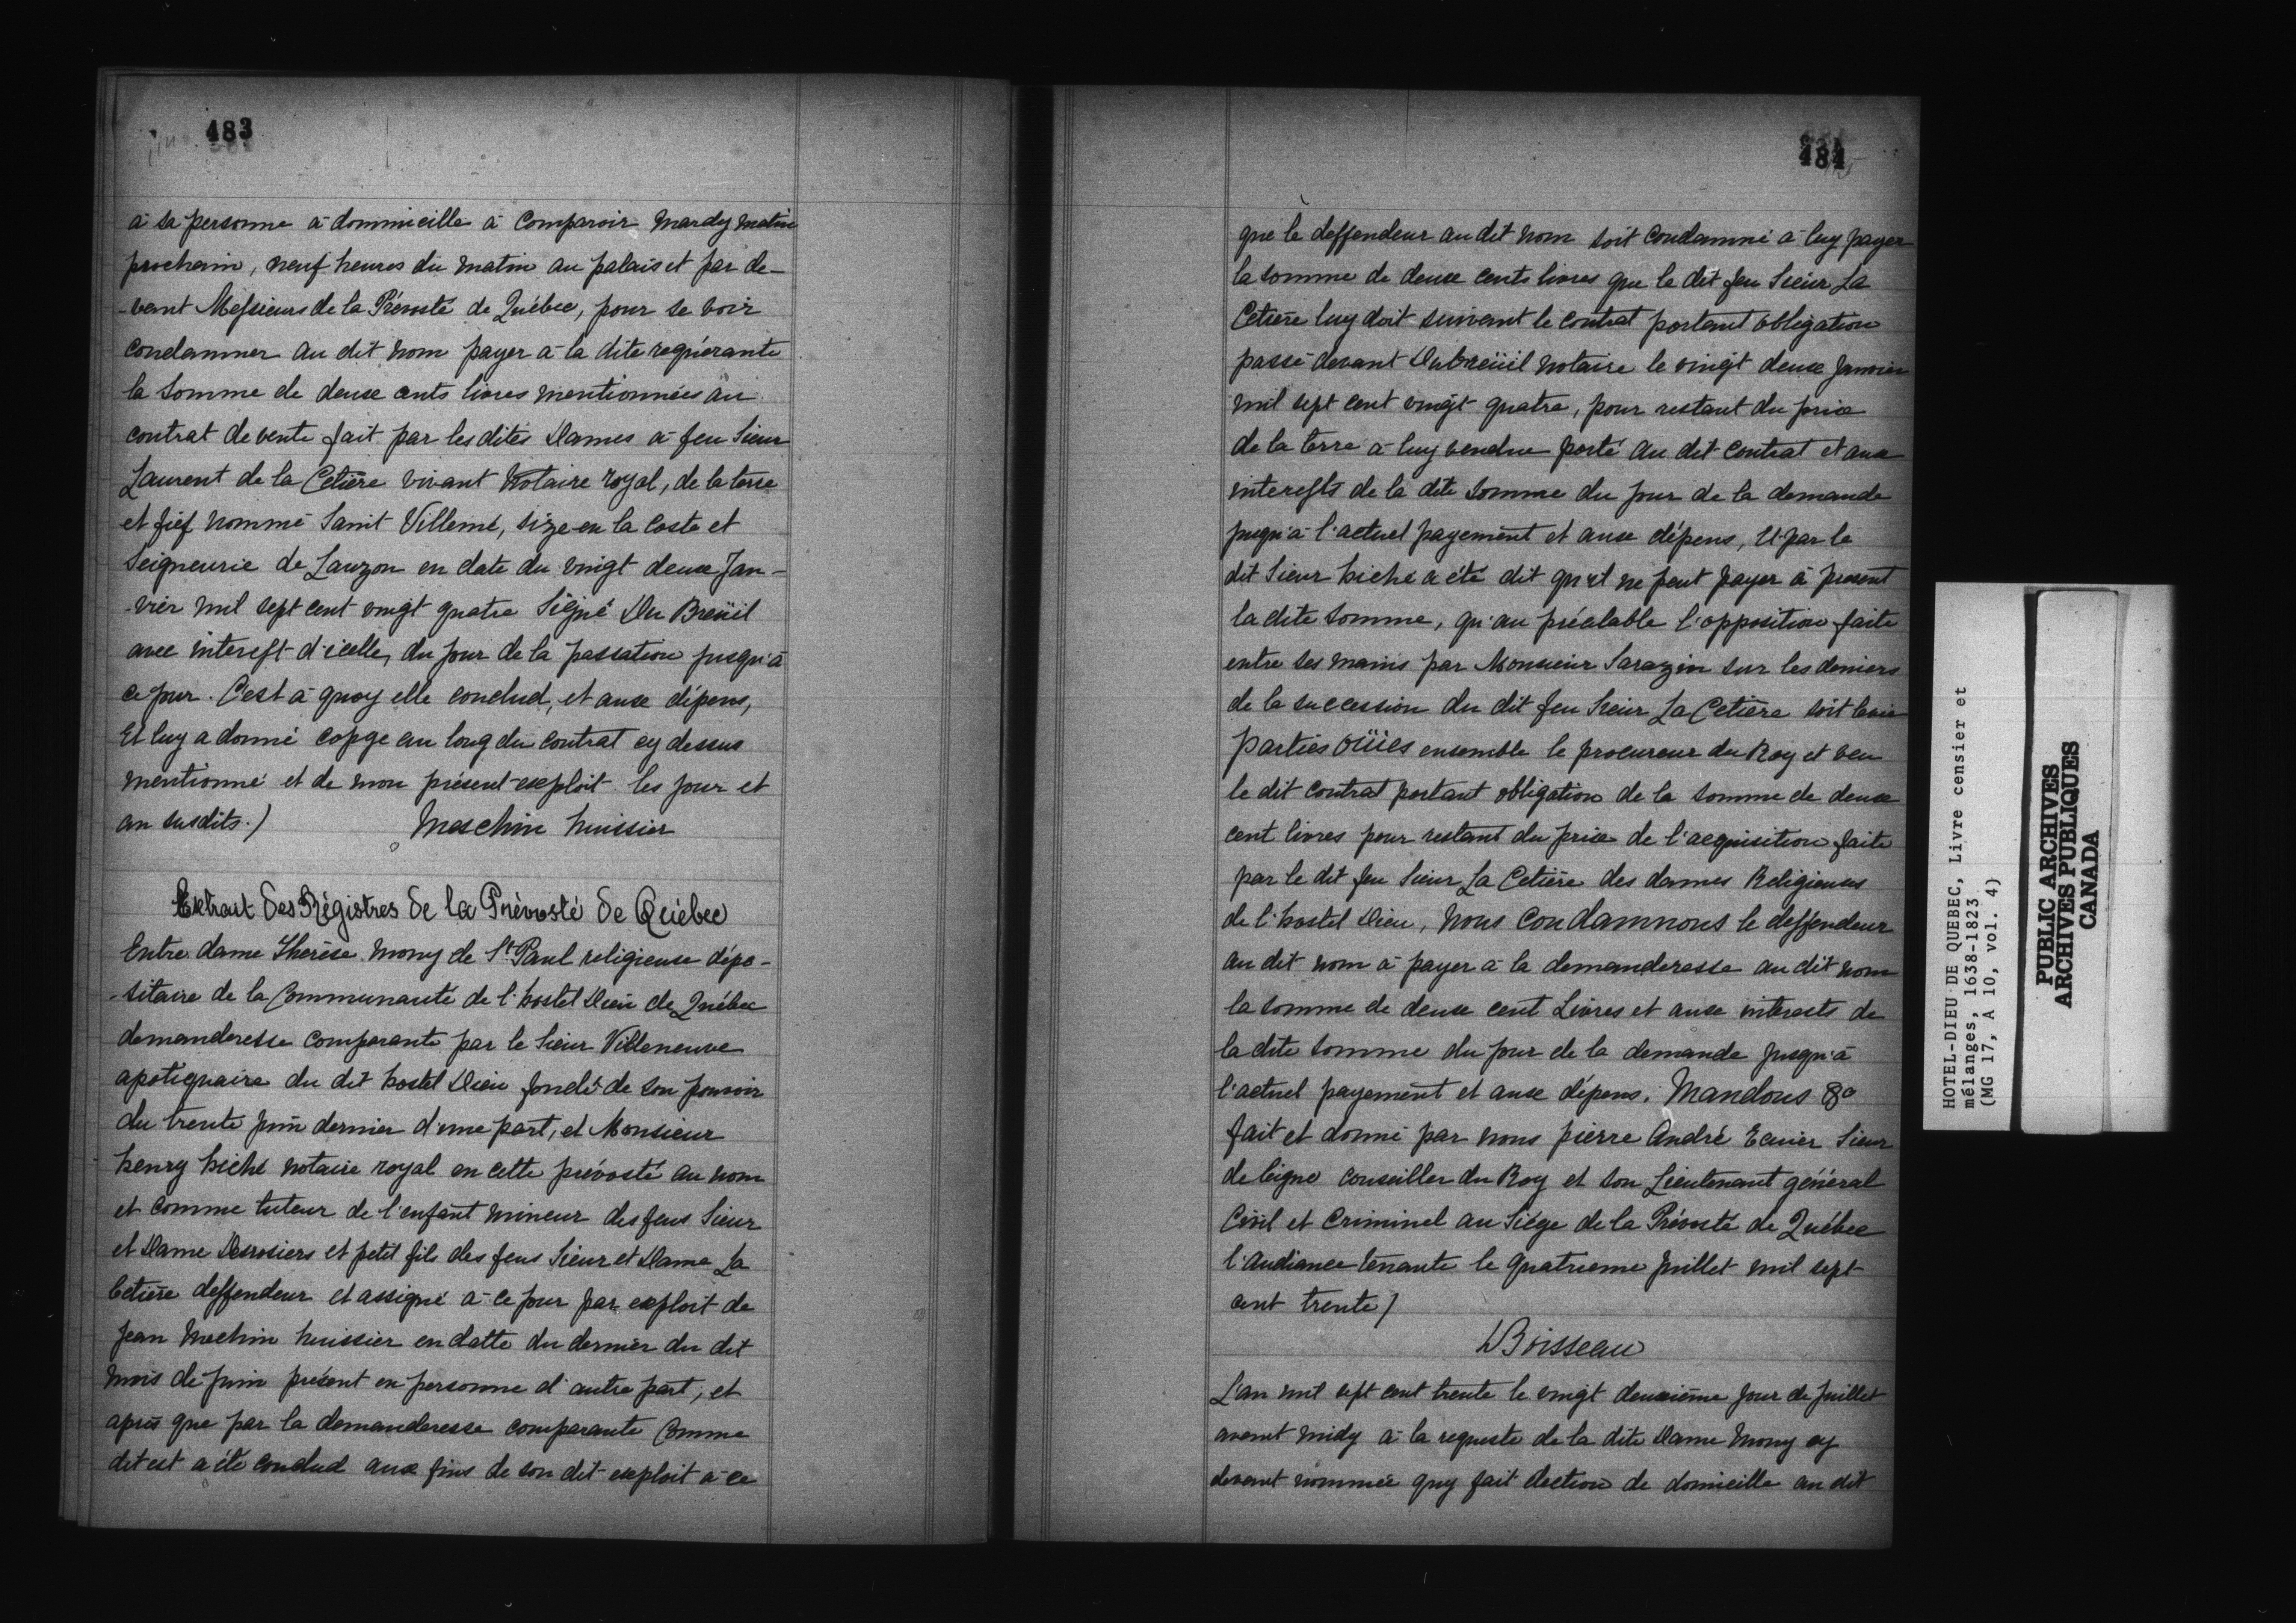 483
à sa personne à dommicille à comparoir Mardy matin
prochain, neuf heures du matin au palais et par de-
-vant Messieurs de la Prévosté de Québec, pour se voir
condamner au dit nom payer à la dite requérante
la somme de deux cents livres mentionnées au
contrat de vente fait par les dites Dames à feu Sieur
Laurent de la Cetière vivant Notaire royal, de la terre
et fief nommé Saint Villemé, size en la Coste et
Seigneurie de Lauzon en date du vingt deux Jan-
-vier mil sept cent vingt quatre Signé Du Breüil
avec interest d'icelle, du jour de la passation jusqu'à
ce jour. C'est à quoy elle conclud, et aux dépens,
Et luy a donné copye au long du contrat cy dessus
mentionné et de mon présent exploit les jour et
an susdits./ Meschin huissier
Extrait des Régistres de la Prévosté de Québec
Entre dame Therèse Mony de St Paul religieuse dépo-
-sitaire de la Communauté de l'hostel Dieu de Québec
demanderesse comparante par le Sieur Villeneuve
apotiquaire du dit hostel Dieu fondé de son pouvoir
du trente juin dernier d'une part, et Monsieur
henry hiché notaire royal en cette prévosté au nom
et comme tuteur de l'enfant mineur des feus Sieur
et Dame Desrosiers et petit fils des feus Sieur et Dame La
Cetière deffendeur et assigné à ce jour par exploit de
Jean Mechin huissier en datte du dernier du dit
mois de juin présent en personne d'autre part, et
après que par la demanderesse comparante Comme
dit est a été conclud aux fins de son dit exploit à ce
484
que le deffendeur au dit nom soit condamné à luy payer
la somme de deux cents livres que le dit feu Sieur La
Cetière luy doit suivant le contrat portant obligation
passé devant Dubreüil notaire le vingt deux Janvier
mil sept cent vingt quatre, pour restant du prix
de la terre à luy vendue porté au dit contrat et aux
interests de la dite somme du jour de la demande
jusqu'à l'actuel payement et aux dépens, Et par le
dit Sieur hiché a été dit qu'il ne peut payer à present
la dite somme, qu'au préalable l'opposition faite
entre ses mains par Monsieur Sarazin sur les deniers
de la succession du dit feu Sieur La Cetière soit levée
parties oüies ensemble le procureur du Roy et veu
le dit contrat portant obligation de la somme de deux
cent livres pour restant du prix de l'acquisition faite
par le dit feu Sieur La Cetière des dames Religieuses
de l'hostel Dieu, Nous Condamnons le deffendeur
au dit nom à payer à la demanderesse au dit nom
la somme de deux cent Livres et aux interests de
la dite somme du jour de la demande jusqu'à
l'actuel payement et aux dépens. Mandons &a
fait et donné par nous pierre André Ecuier Sieur
de leigne conseiller du Roy et son Lieutenant général
Civil et Criminel au Siége de la Prévosté de Québec
l'audiance tenante le quatrieme juillet mil sept
cent trente /
Boisseau
L'an mil sept cent trente le vingt deuxième jour de Juillet
avant midy à la requeste de la dite Dame Mony cy
devant nommée quy fait election de domicille au dit
HOTEL-DIEU DE QUEBEC, Livre censier et
mélanges, 1638-1823
(MG 17, A 10, vol. 4)
PUBLIC ARCHIVES
ARCHIVES PUBLIQUES
CANADA